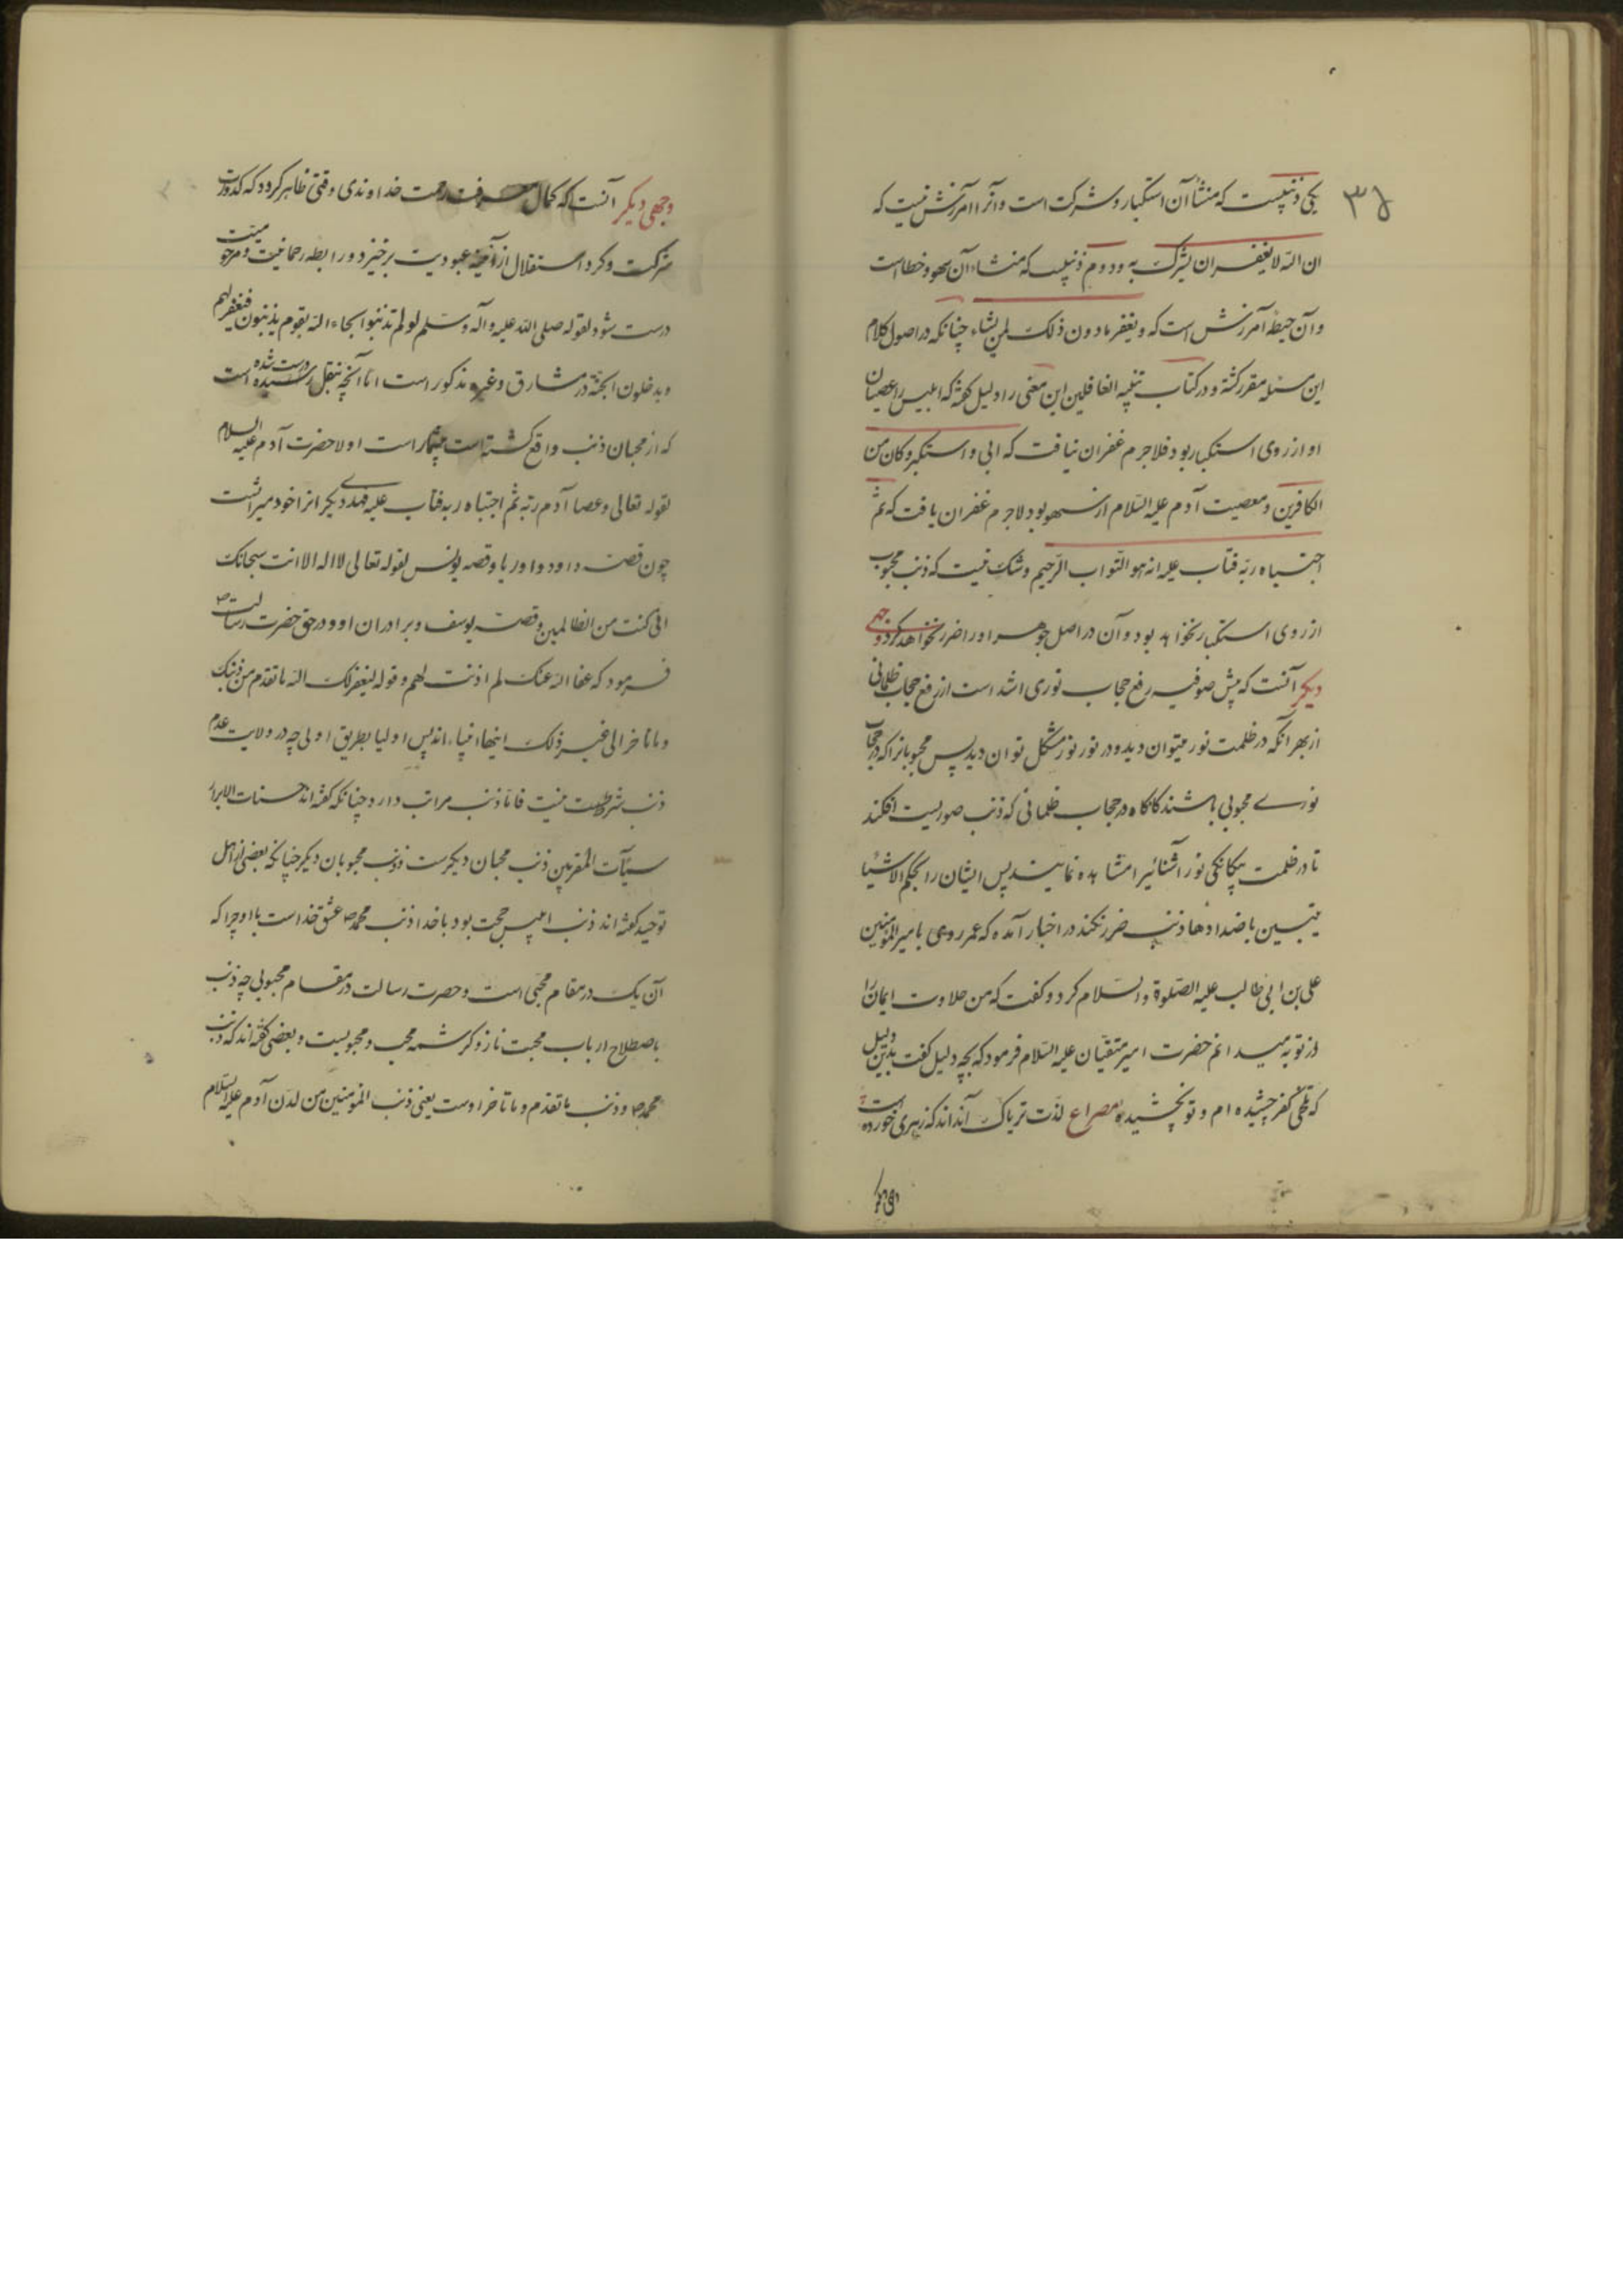 ۳۸
یکی ذنبیست که منشأ آن استکبار و شرکت است و آنرا آمرزش نیست که
ان الله لا یغفر ان یشرک به و دوم ذنبیست که منشاء آن سهو و خطا است
و آن حیطهٔ آمرزش است که و یغفر مادون ذلک لمن یشاء چنانکه در اصول کلام
این مسئله مقرر کشته و در کتاب تنبیه الغافلین این معنی را دلیل کفته که ابلیس را عصیان
او از روی استکبار بود فلاجرم غفران نیافت که ابی و استکبر و کان من
الکافرین و معصیت آدم علیه السلام از سهو بود لاجرم غفران یافت که ثم
اجتباه ربه فتاب علیه انه هو التواب الرحیم و شک نیست که ذنب محبوب
از روی استکبار نخواهد بود و آن در اصل جوهر او را ضرر نخواهد کرد وجهی
دیکر آنست که پیش صوفیه رفع حجاب نوری اشد است از رفع حجاب ظلمانی
از بهر آنکه در ظلمت نور میتوان دید و در نور نور مشکل توان دید پس محبوبانرا که در حجاب
نوری محبوبی باشند کاهکاه در حجاب ظلمانی که ذنب صوریست افکند
تا در ظلمت بیکانکی نور آشنائیرا مشاهده نمایند پس ایشان را بحکم الاشیا
یتبین باضدادها ذنب ضرر نکند در اخبار آمده که عمر روی بامیر المؤمنین
علی بن ابی طالب علیه الصلوة والسلام کرد و کفت که من حلاوت ایمان را
از تو به میدانم حضرت امیر متقیان علیه السلام فرمود که بچه دلیل کفت بدین دلیل
که تلخی کفر چشیده ام و تو نچشیدهٔ مصراع لذت تریاک آنداند که زهری خورده است
وجهی دیکر آنست که کمال معرفت رحمت خداوندی وقتی ظاهر کردد که کدورت
شرکت و کرد استقلال از آینهٔ عبودیت برخیزد و رابطه رحمانیت و مرحومیت
درست شود لقوله صلی الله علیه و آله و سلم لو لم تذنبوا لجاء الله بقوم یذنبون فیغفر لهم
و یدخلون الجنة در مشارق و غیره مذکور است اما آنچه بنقل درست شده رسیده است
که از محبان ذنب واقع کشته است بیشمار است اولا حضرت آدم علیه السلام
لقوله تعالی و عصا آدم ربه ثم اجتباه ربه فتاب علیه فهدی دیکر انرا خود میراثست
چون قصه داود و اوریا و قصه یونس لقوله تعالی لا اله الا انت سبحانک
انی کنت من الظالمین و قصه یوسف و برادران او و در حق حضرت رسالت ص
فرمود که عفا الله عنک لم اذنت لهم و قوله لیغفر لک الله ما تقدم من ذنبک
و ما تاخر الی غیر ذلک اینها انبیاءاند پس اولیا بطریق اولی چه در ولایت عدم
ذنب شرطیت نیست فاما ذنب مراتب دارد چنانکه کفته اند حسنات الابرار
سیآت المقربین ذنب محبان دیکرست و ذنب محبوبان دیکر چنانکه بعضی از اهل
توحید کفته اند ذنب ابلیس حجت بود با خدا ذنب محمد ص عشق خداست با او چرا که
آن یک در مقام محبی است و حضرت رسالت در مقام محبوبی چه ذنب
باصطلاح ارباب محبت ناز و کرشمه محب و محبوبیست و بعضی کفته اند که ذنب
محمد ص و ذنب ما تقدم و ما تاخر اوست یعنی ذنب المؤمنین من لدن آدم علیه السلام